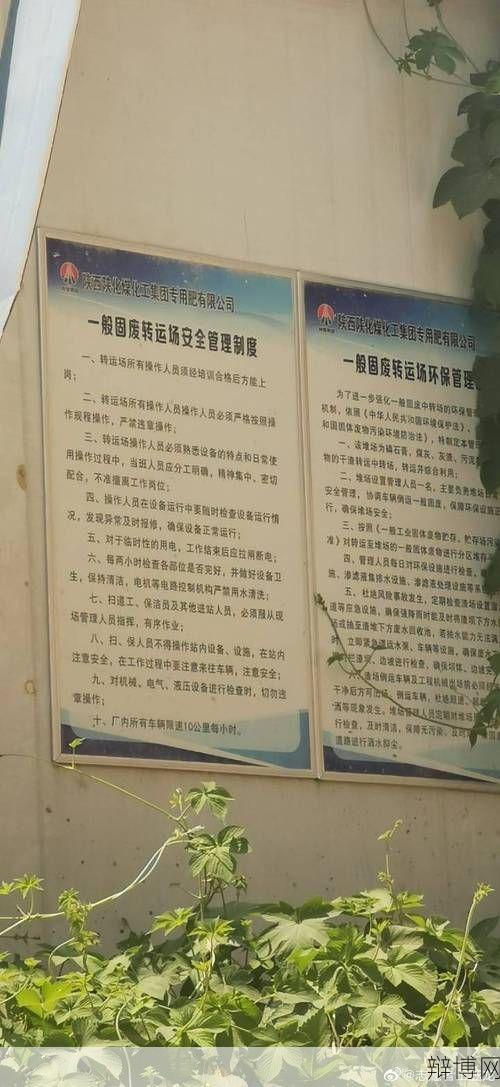 陕西陕化煤化工集团专用肥有限公司
一般固废转运场安全管理制度
一、转运场所有操作人员须经培训合格后方能上
岗;
二、转运场所有操作人员操作人员必须严格按照操
作规程操作,严禁违章操作;
三、转运场操作人员必须熟悉设备的特点和日常使
用操作过程中,当班人员应分工明确,精神集中、密切
配合,不准擅离工作岗位;
四、操作人员在设备运行中要随时检查设备运行情
况,发现异常及时报修,确保设备正常运行;
五、对于临时性的用电,工作结束后应拉用断电;
六、每两小时检查各部位是否完好,并做好设备卫
生,保持清洁,电机等电路控制机构严禁用水清洗;
七、扫道工、保洁员及其他进站人员,必须服从现
场管理人员指挥,有序作业;
八、扫、保人员不得操作站内设备、设施,在站内
注意安全,在工作过程中要注意来往车辆,注意安全;
九、对机械、电气、液压设备进行检查时,切勿违
章操作;
十、厂内所有车辆限速10公里每小时。
陕西陕化煤化工集团专用肥有限公司
一般固废转运场环保管理
为了进一步强化一般固废中转场的环保管
机制,依照《中华人民共和国环境保护法》、
和国固体废物污染环境防治法》,特制定本管
一、该堆场为磷石膏,煤灰、灰渣、污泥
物的干渣转运中转场,转运并综合利用;
二、堆场设置管理人员一名,主要负责堆场日
安全管理,协调车辆倒运一般固废,保障环保设施正
行,确保堆场安全;
三、按照《一般工业固体废物贮存、贮存场污
准》对转运至堆场的一般固体废物进行分区堆存
四、管理人员每日对环保设施进行检查,
施、渗滤液集排水设施、渗滤液处理设施等系
五、杜绝风险事故发生,定期检查渣场设置
道等应急设施,确保强降雨时能及时将渣坝下方水
或抽至渣堆下方废水回收池,若抽水能力无法
时,立即紧急调运水泵、车辆等设施,确保废水
拦渣坝、边坡进行检查,确保坝体、边坡安
渣场倒运车辆及工程机械出场前必须
干净后方可出场,倒运车辆,杜绝超速、
洒等现象发生。堆场管理人员定期对堆场
行检查,及时清洁,保障无污染。及时
道路进行洒水抑尘。
辩博网